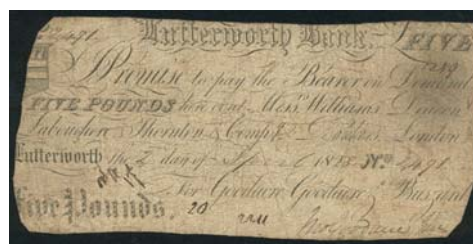 Lutterworth Bank. FIVE
I Promise to pay the Bearer on Demand
FIVE POUNDS here or at Mess.rs Williams Deacon
Labouchere Thornton & Comp.y Bankers London
Lutterworth the 2 day of 1828 No. 2491
For Goodacre Goodacre & Buszard
Five Pounds.
20